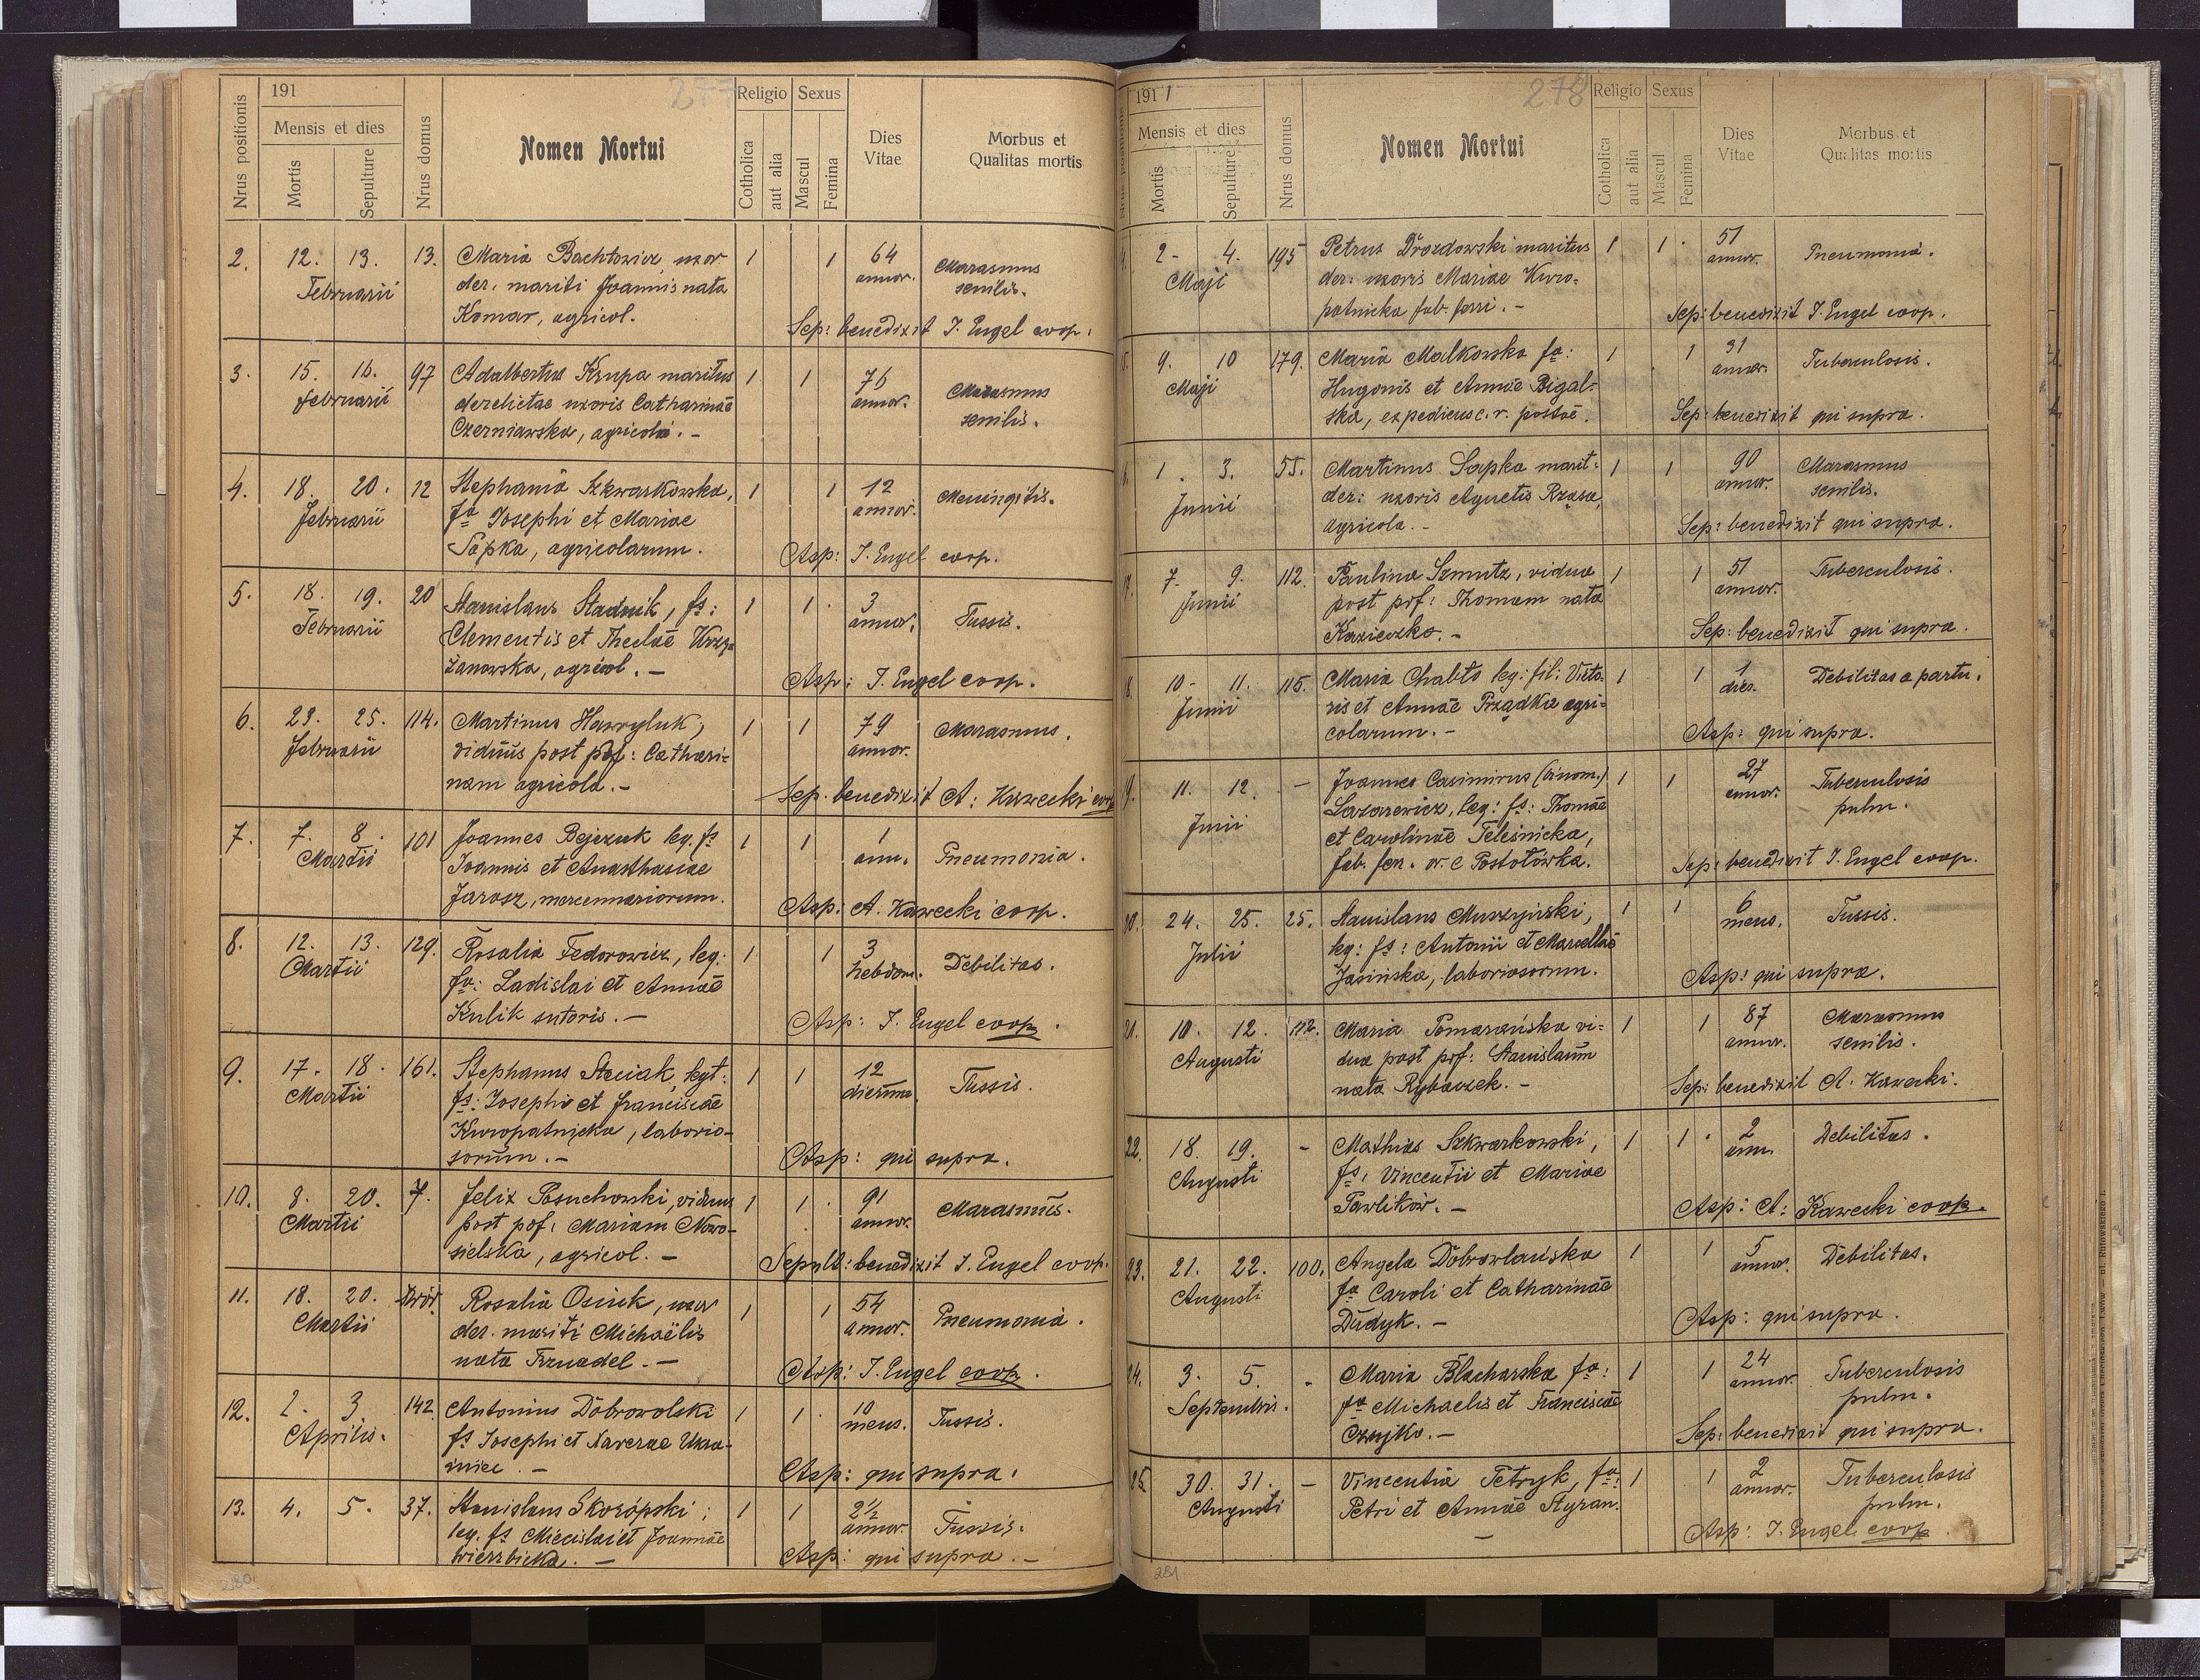 277
191
Nrus positionis
Mensis et dies
Mortis
Sepulture
Nrus domus
Nomen Mortui
Religio
Catholica
aut alia
Sexus
Mascul
Femina
Dies
Vitae
Morbus et
Qualitas mortis
2. 12. 13. 13. Maria Bachtowicz, uxor 1 1 64 Marasmus
Februarii der. mariti Joannis nata annor. senilis.
Komar, agricol. Sep: benedixit J. Engel coop.
3. 15. 16. 97 Adalbertus Krupa maritus 1 1 76 Marasmus
Februarii derelictae uxoris Catharinae annor. senilis.
Czerniawska, agricola. -
4. 18. 20. 12 Stephania Szkwarkowska, 1 1 12 Meningitis.
Februarii fa Josephi et Mariae annor.
Sapka, agricolarum. Asp: J. Engel coop.
5. 18. 19. 20 Stanislaus Stadnik, fs: 1 1 3 Tussis.
Februarii Clementis et Theclae Krzy- annor.
żanowska, agricol. - Asp: J. Engel coop.
6. 23. 25. 114. Martinus Hawryluk, 1 1 79 Marasmus.
Februarii viduus post pof: Cathari- annor.
nam agricola. - Sep. benedixit A: Kawecki coop
7. 7. 8. 101 Joannes Bejczuk leg. fs 1 1 1 Pneumonia.
Martii Joannis et Anasthasiae ann.
Jarosz, mercennariorum. Asp: A. Kawecki coop.
8. 12. 13. 129. Rosalia Fedorowicz, leg: 1 1 3 Debilitas.
Martii fa: Ladislai et Annae hebdom.
Kulik sutoris. - Asp: J. Engel coop.
9. 17. 18. 161. Stephanus Steciak, legt: 1 1 12 Tussis.
Martii fs: Josephi et Franciscae dierum.
Kuropatnicka, laborio-
sorum. - Asp: qui supra.
10. 8. 20. 7. Felix Posuchowski, viduus 1 1 91 Marasmus.
Martii post pof: Mariam Nowo- annor.
sielska, agricol. - Sepult: benedixit J. Engel coop.
11. 18. 20. Rosalia Osiuk, uxor 1 1 54 Pneumonia.
Martii der. mariti Michaëlis annor.
nata Trznadel. - Asp: J. Engel coop.
12. 2. 3 142. Antonius Dobrowolski 1 1 10 Tussis.
Aprilis. fs Josephi et Xaverae Ukra- mens.
iniec. - Asp: qui supra.
13. 4. 5. 37. Stanislaus Skorópski; 1 1 2½ Tussis.
leg. fs Miecislai et Joannae annor.
Wierzbicka. - Asp: qui supra. -
280
278
1911
Nrus positionis
Mensis et dies
Mortis
Sepulture
Nrus domus
Nomen Mortui
Religio
Catholica
aut alia
Sexus
Mascul
Femina
Dies
Vitae
Morbus et
Qualitas mortis
2- 4. 195 Petrus Drozdowski maritus 1 1 51 Pneumonia.
Maji der: uxoris Mariae Kuro- annor.
patnicka fab. ferri. - Sep: benedixit J. Engel coop.
9. 10 179. Maria Malkowska fa: 1 1 31 Tuberculosis.
Maji Hugonis et Annae Bigal- annor.
ska, expediens c. r. postae. Sep: benedixit qui supra.
1. 3. 55. Martinus Sapka marit: 1 1 90 Marasmus
Junii der: uxoris Agnetis Rzasa, annor. senilis.
agricola. - Sep: benedixit qui supra.
17. 7. 9. 112. Paulina Szmutz, vidua 1 1 51 Tuberculosis.
Junii post pof: Thomam nata annor.
Kozieczko. - Sep: benedixit qui supra.
18. 10- 11. 115. Maria Chabło leg: fil: Victo- 1 1 1 Debilitas a partu.
Junii ris et Annae Prządka agri- dies.
colarum. - Asp: qui supra.
19. 11. 12. - Joannes Casimirus (binom.) 1 1 27 Tuberculosis
Junii Lazarewicz, leg: fs: Thomae annor. pulm.
et Carolinae Teleśnicka,
fab. ferr. or. e Postołówka. Sep: benedixit J. Engel coop.
24. 25. 25. Stanislaus Muszyński, 1 1 6 Tussis.
Julii leg: fs: Antonii et Marcellae mens.
Jasińska, laboriosorum. Asp: qui supra.
21. 10. 12. 112. Maria Pomarańska vi- 1 1 87 Marasmus
Augusti dua post pof: Stanislaum annor. senilis.
nata Rybaczek. - Sep: benedixit A. Kawecki.
22. 18. 19. - Mathias Szkwarkowski, 1 1 2 Debilitas.
Augusti fs: Vincentii et Mariae ann.
Pawlików. - Asp: A: Kawecki coop.
23. 21. 22. 100. Angela Dobrowlańska 1 1 5 Debilitas.
Augusti fa Caroli et Catharinae annor.
Dudyk. - Asp: qui supra.
24. 3. 5. - Maria Blacharska fa: 1 1 24 Tuberculosis
Septembris. fa Michaelis et Franciscae annor. pulm.
Czujko. - Sep: benedixit qui supra.
25. 30. 31. - Vincentia Petryk, fa: 1 1 2 Tuberculosis
Augusti Petri et Annae Styran. annor. pulm.
- Asp: J. Engel coop.
281